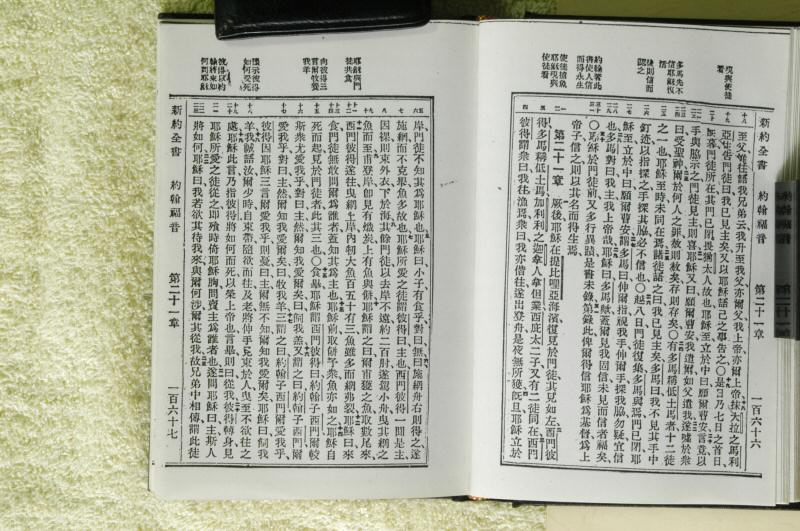 現與使徒
看
多馬先不
信耶穌復
活
後則信而
認之
約翰著此
書使人信
而得永生
使徒捕魚
耶穌現與
使徒看
新約全書 約翰福音 第二十一章 一百六十六
至父、惟往語我兄弟云、我升至我父、亦爾父、我上帝、亦爾上帝、抹大拉之馬利
亞往告門徒曰、我已見主矣、又以耶穌語己之事告之○是日乃七日之首日、
既暮、門徒所在其門已閉、畏猶太人故也、耶穌至、立於中曰、願爾曹安、言竟、以
手與脇示之、門徒見主則喜、耶穌又曰、願爾曹安、我遣爾、如父遣我、遂噓於衆
曰、受聖神、爾於何人之罪、赦則赦矣、存則存矣○有多馬稱低土馬者、十二徒
之一也、耶穌至時未同在焉、諸徒語之曰、我已見主矣、多馬曰、我不見其手中
釘迹、以指探之、手探其脇、必不信也○越八日、門徒復集、多馬與焉、門已閉、耶
穌至、立於中曰、願爾曹安、謂多馬曰、伸爾指視我手、伸爾手探我脇、勿疑宜信
也、多馬對曰、我主我上帝哉、耶穌曰、多馬歟、蓋爾見我固信、未見而信者福矣、
○耶穌於門徒前、又多行異蹟、是書未錄、第錄此、俾爾得信耶穌為基督、為上
帝子、信之則以其名而得生焉、
第二十一章 厥後、耶穌在提比哩亞海濱、復見於門徒、其見如左、西門彼
得、多馬稱低土馬、加利利之迦拿人拿但業、西庇太二子、又有二徒同在、西門
彼得謂衆曰、我往漁焉、衆曰、我亦偕往、遂出登舟、是夜無所獲、既旦、耶穌立於
耶穌與門
徒共食
向彼得三
言爾牧養
我羊
預示彼得
如何受死
彼得以約
翰將來如
何問耶穌
新約全書 約翰福音 第二十一章 一百六十七
岸、門徒不知其為耶穌也、耶穌曰、小子有食乎、對曰、無、曰、施網舟右則得之、遂
施網、而不克舉、魚多故也、耶穌所愛之徒謂彼得曰、主也、西門彼得一聞是主、
因裸則束外衣、下於海、其餘門徒、以去岸不遠、約二百肘、遂駕小舟、曳其網之
魚而至、甫登岸、卽見有熾炭、上有魚與餅、耶穌謂之曰、爾甫獲之魚、取數尾來、
西門彼得遂往、曳網上岸、內韌大魚百五十有三、魚雖多、而網弗裂、耶穌曰、來
食、門徒無敢問爾為誰者、蓋知其為主也、耶穌前取餅予衆、魚亦如之、耶穌自
死而起、見於門徒者此其三也○食畢、耶穌謂西門彼得曰、約翰子西門、爾較
斯衆尤愛我乎、對曰、主、然、爾知我愛爾矣、曰、飼我羔、又謂之曰、約翰子西門、爾
愛我乎、對曰、主、然、爾知我愛爾矣、曰、牧我羊、三謂之曰、約翰子西門、爾愛我乎、
彼得因耶穌三言爾愛我乎則憂、曰、主、爾無不知、爾知我愛爾矣、耶穌曰、飼我
羊、我誠語汝、爾少時自束帶、隨欲而往、及老將伸手、見束於人、曳至不欲往之
處、耶穌此言、乃指彼得將如何而死、以榮上帝也、言畢、則曰、從我、彼得轉身、見
耶穌所愛之徒從之、卽飱時倚耶穌胸、問賣主為誰者也、遂問耶穌曰、主、斯人
將如何、耶穌曰、我若欲其待我來、與爾何涉、爾其從我、故兄弟中相傳、謂此徒